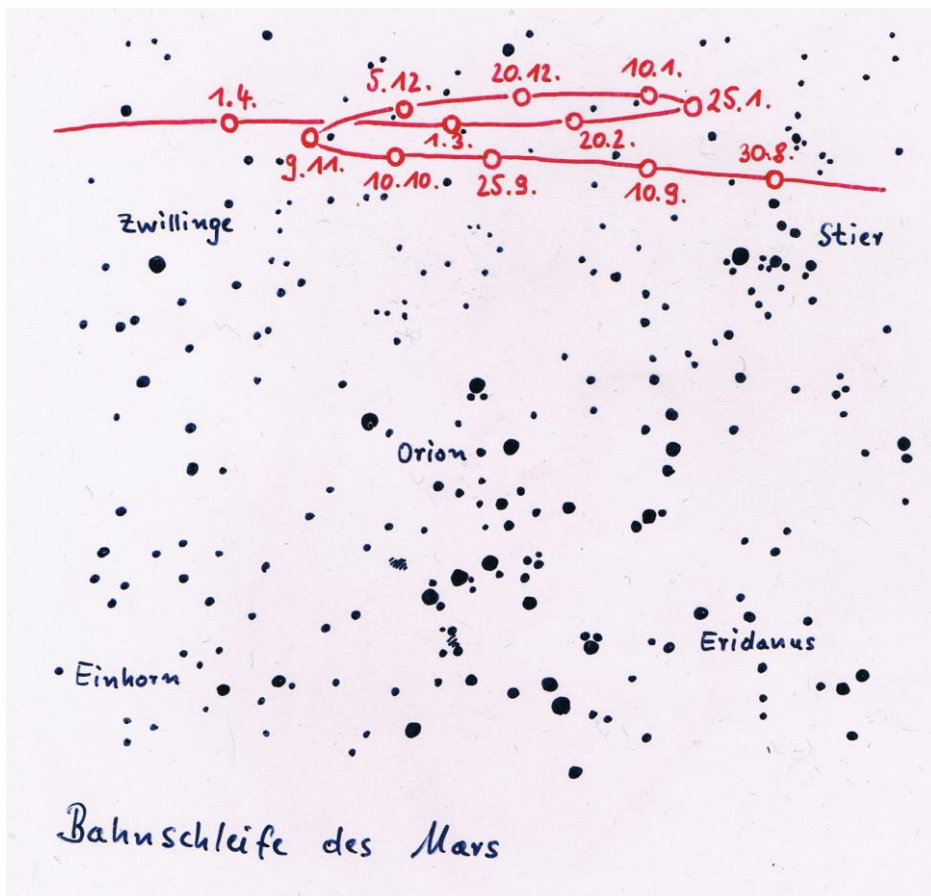 5.12. 20.12. 10.1.
1.4. 25.1.
9.11. 1.3. 20.2. 30.8.
10.10. 25.9. 10.9.
Zwillinge Stier
Orion
Eridanus
Einhorn
Bahnschleife des Mars